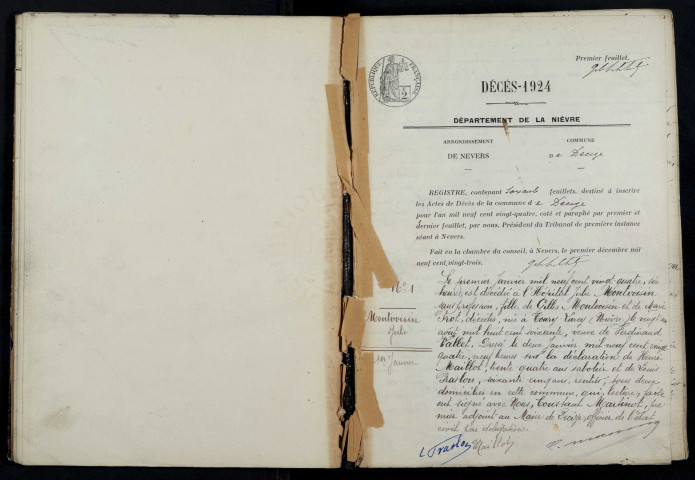 Premier feuillet.
RÉPUBLIQUE FRANÇAISE
DÉCÈS-1924
DÉPARTEMENT DE LA NIÈVRE
ARRONDISSEMENT
DE NEVERS
COMMUNE
DE Decize
REGISTRE, contenant soixante feuillets, destiné à inscrire
les Actes de Décès de la commune de Decize
pour l'an mil neuf cent vingt-quatre, coté et paraphé par premier et
dernier feuillet, par nous, Président du Tribunal de première instance
séant à Nevers.
Fait en la chambre du conseil, à Nevers, le premier décembre mil
neuf cent vingt-trois.
No 1
Montvoisin
Julie
1er Janvier
Le premier Janvier mil neuf cent vingt quatre,
heures, est décédée à l'Hôpital Julie Montvoisin
sans profession, fille de Gilles Montvoisin et de Marie
décédés, née à Toury Lurcy (Nièvre) le vingt
août mil huit cent soixante, veuve de Ferdinand
Vallet. Dressé le deux Janvier mil neuf cent vingt
quatre, neuf heures sur la déclaration de Henri
Maillot, trente quatre ans sabotier et de Louis
soixante cinq ans, rentier, tous deux
domiciliés en cette commune, qui, lecture faite
ont signé avec Nous, Constant Martinot, pre
mier adjoint au Maire de Decize, officier de l'état
civil par délégation.